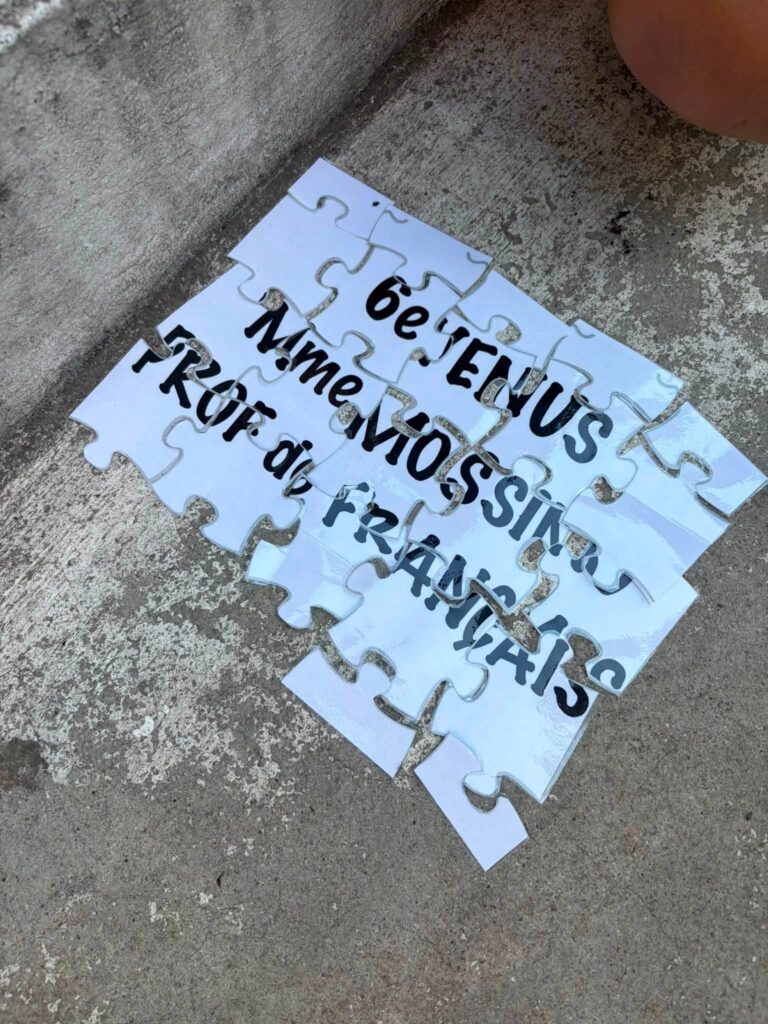 6e VENUS
Mme MOSSINO
PROF de FRANÇAIS